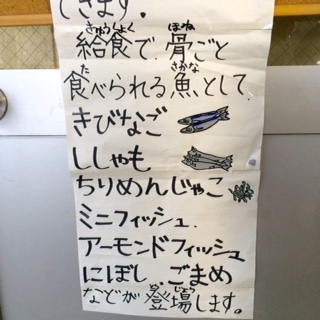 できます。
給食で 骨ごと
食べられる魚として
きびなご
ししゃも
ちりめんじゃこ
ミニフィッシュ
アーモンドフィッシュ
にぼし ごまめ
などが登場します。